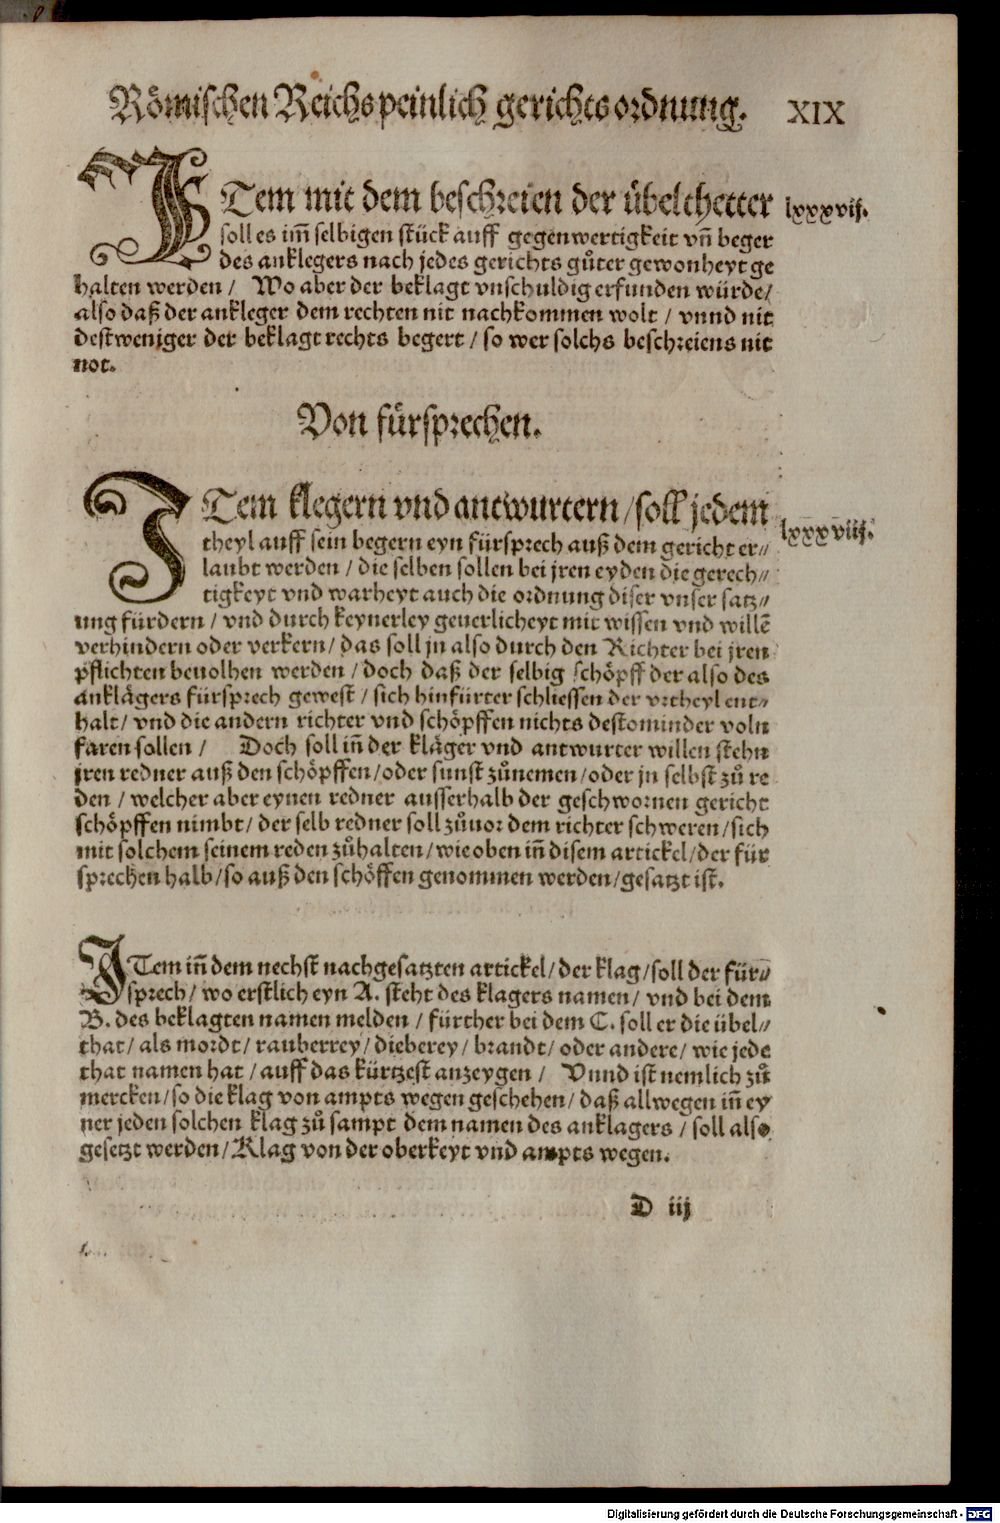 Römischen Reichs peinlich gerichts ordnung. XIX
ITem mit dem beschreien der übelthetter lxxxvij.
soll es im̃ selbigen stück auff gegenwertigkeit vñ beger
des anklegers nach jedes gerichts gůter gewonheyt ge
halten werden / Wo aber der beklagt vnschuldig erfunden würde /
also daß der ankleger dem rechten nit nachkommen wolt / vnnd nit
destweniger der beklagt rechts begert / so wer solchs beschreiens nit
not.
Von fürsprechen.
ITem klegern vnd antwurtern / soll jedem lxxxviij.
theyl auff sein begern eyn fürsprech auß dem gericht er⸗
laubt werden / die selben sollen bei jren eyden die gerech⸗
tigkeyt vnd warheyt auch die ordnung diser vnser satz⸗
ung fürdern / vnd durch keynerley geuerlicheyt mit wissen vnd willẽ
verhindern oder verkern / das soll jn also durch den Richter bei jren
pflichten beuolhen werden / doch daß der selbig schöpff der also des
anklägers fürsprech gewest / sich hinfürter schliessen der vrtheyl ent⸗
halt / vnd die andern richter vnd schöpffen nichts destominder voln
faren sollen / Doch soll iñ der kläger vnd antwurter willen stehn
jren redner auß den schöpffen / oder sunst zůnemen / oder jn selbst zů re
den / welcher aber eynen redner ausserhalb der geschwornen gericht
schöpffen nimbt / der selb redner soll zůuor dem richter schweren / sich
mit solchem seinem reden zůhalten / wie oben iñ disem artickel / der für
sprechen halb / so auß den schöffen genommen werden / gesatzt ist.
ITem iñ dem nechst nachgesatzten artickel / der klag / soll der für⸗
sprech / wo erstlich eyn A. steht des klagers namen / vnd bei dem
B. des beklagten namen melden / fürther bei dem C. soll er die übel⸗
that / als mordt / rauberrey / dieberey / brandt / oder andere / wie jede
that namen hat / auff das kürtzest anzeygen / Vnnd ist nemlich zů
mercken / so die klag von ampts wegen geschehen / daß allwegen iñ ey
ner jeden solchen klag zů sampt dem namen des anklagers / soll also
gesetzt werden / Klag von der oberkeyt vnd ampts wegen.
D iij
Digitalisierung gefördert durch die Deutsche Forschungsgemeinschaft - DFG